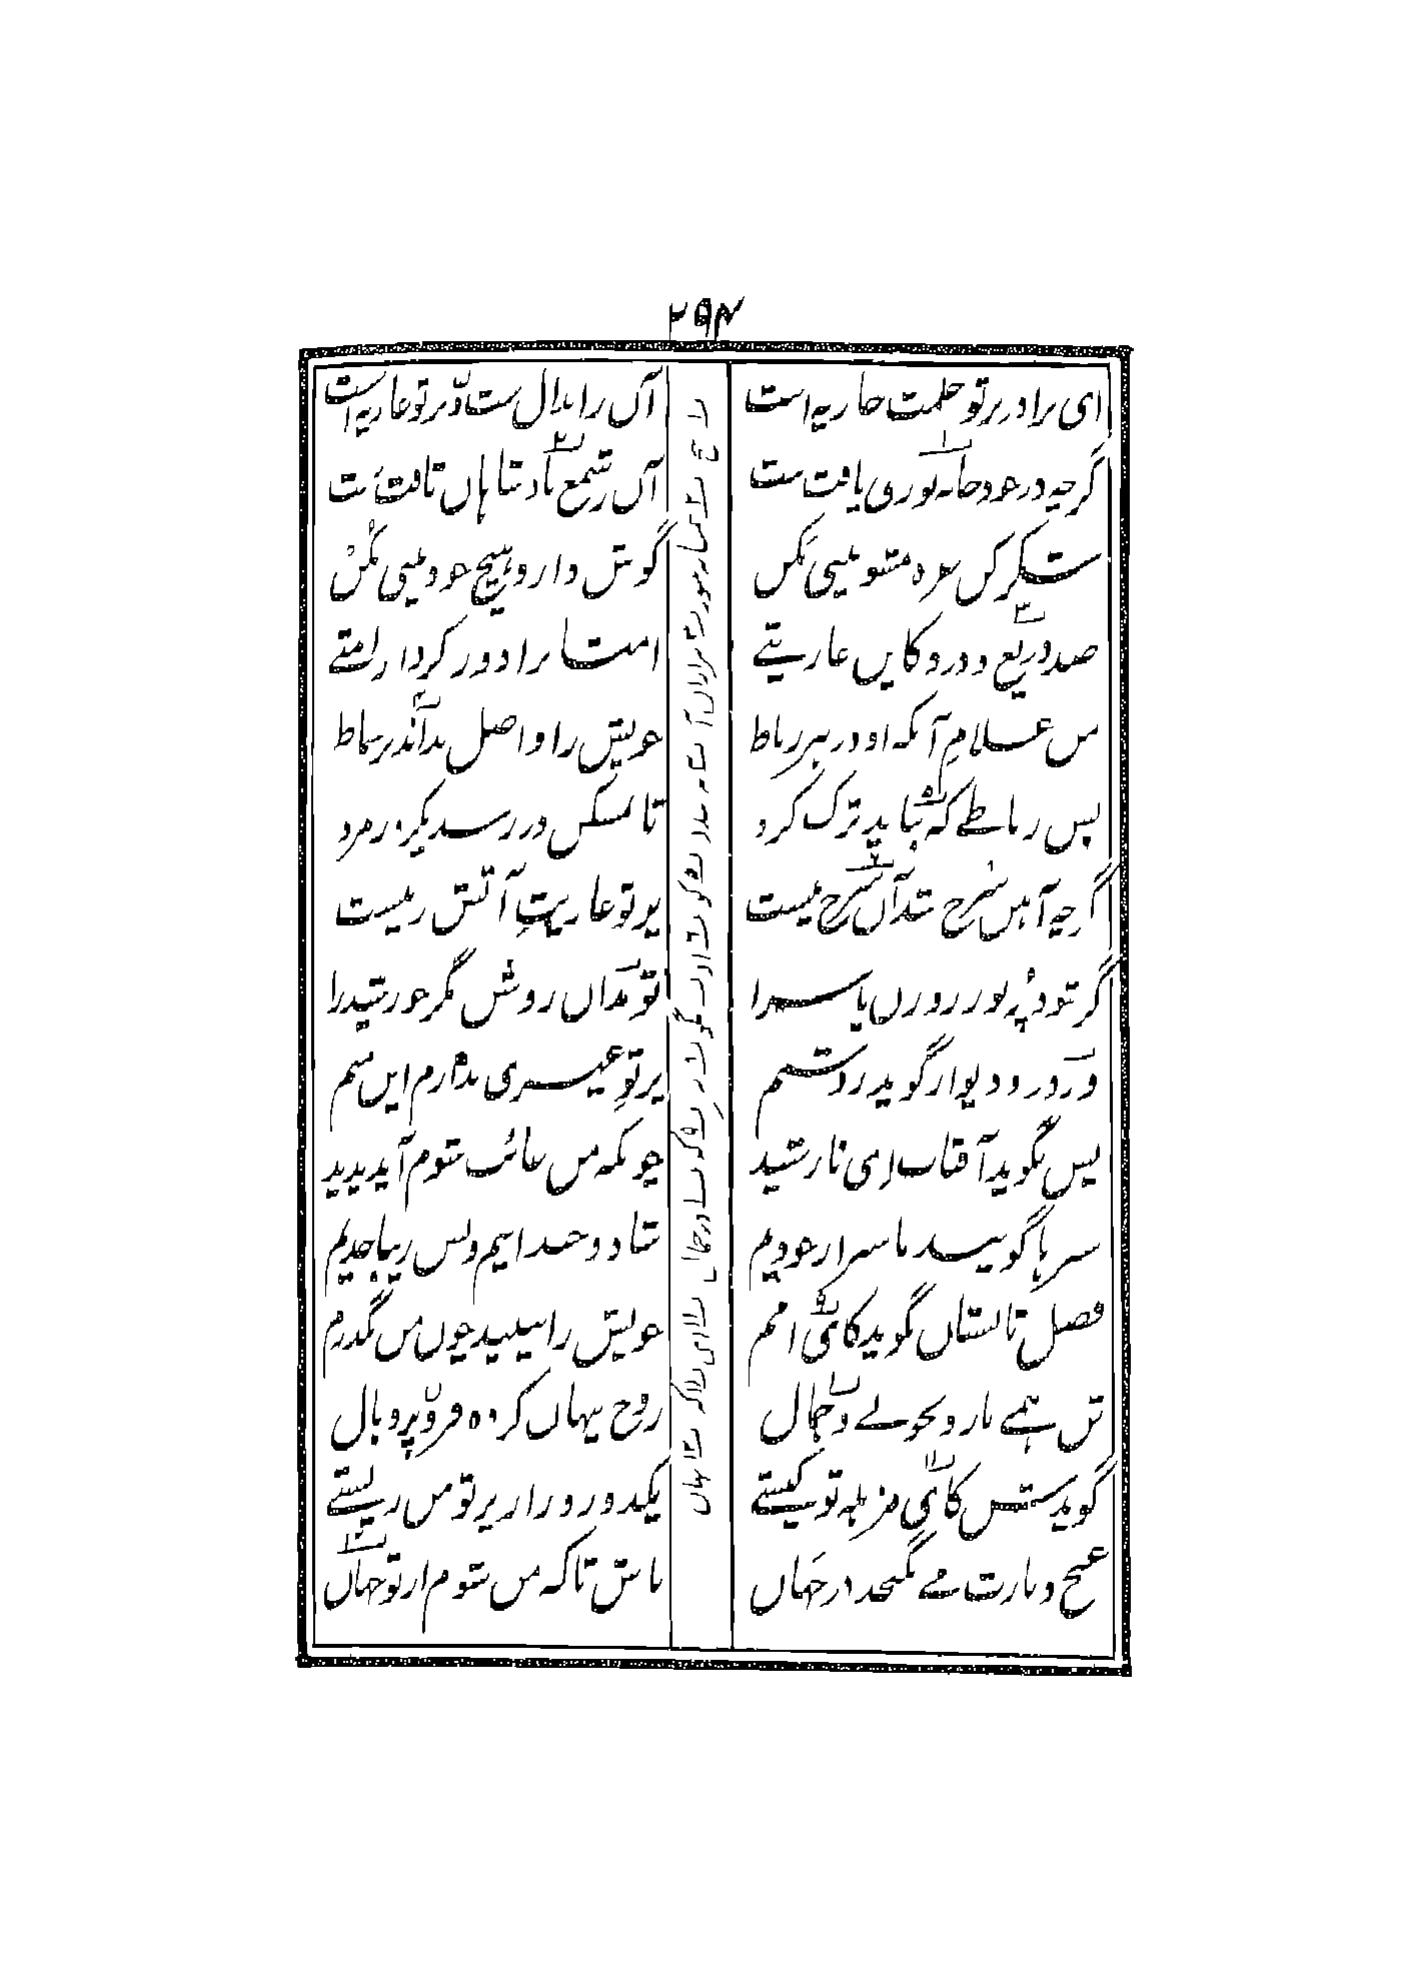 ۲۹۴
ای برادر بر تو حکمت جاریه است آں ز ابدال ست و بر تو عاریه است
گرچه در خود خانه نوری یافت ست آں ز شمع بادشاہاں تافت ست
شکر کن غره مشو بینی مکن گوش دار و ہیچ خود بینی مکن
صد دریغ و درد کایں عاریتے امتاں را دور کرد از امتے
من غلامِ آنکه او در ہر رباط خویش را واصل نداند بر سماط
پس رباطے که بباید ترک کرد تا بمسکن در رسد یکروز مرد
گرچه آہن سرخ شد آں سرخ نیست پرتو عاریتِ آتش زنیست
گر شود پُر نور روزن یا سرا تو مداں روشن مگر خورشید را
ور در و دیوار گوید روشنم پرتوِ غیری ندارم این منم
پس بگوید آفتاب ای نارشید چونکه من غائب شوم آید پدید
سبزہا گویند ما سبز از خودیم شاد و خندانیم و بس زیبا خدیم
فصل تابستاں گوید کای امم خویش را بینید چوں من بگذرم
تن ہمے نازد بخوبے و جمال روح پنهاں کرده فر و پر و بال
گویدش کای مزبله تو کیستے یکدو روز از پرتو من زیستے
غنج و نازت مے نگنجد در جہاں باش تا که من شوم از تو جہاں